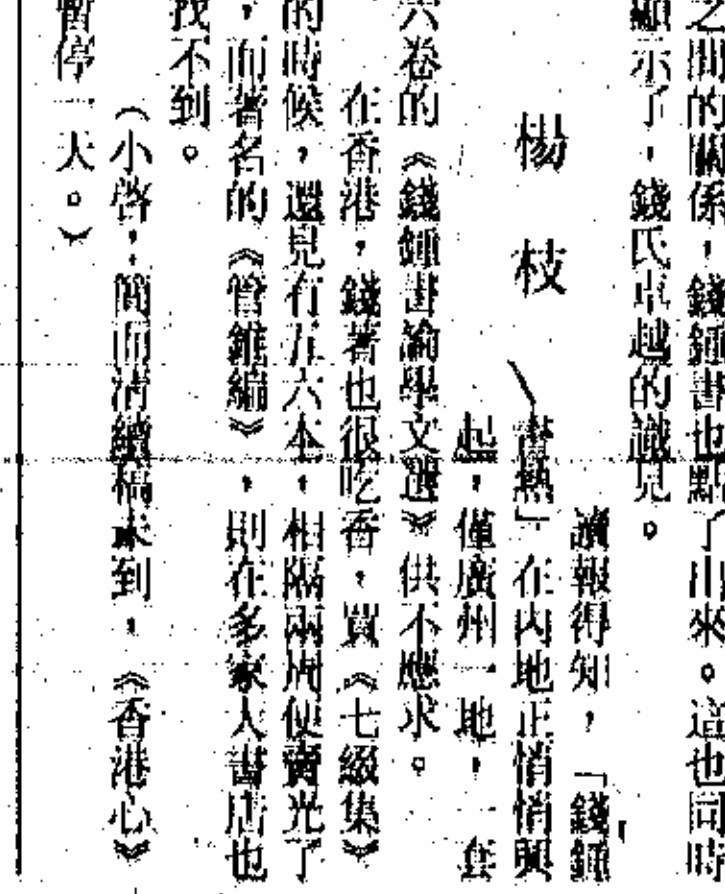 之間的關係，錢鍾書也點了出來。這也同時
顯示了，錢氏卓越的識見。
楊枝
讀報得知，「錢鍾
書熱」在內地正悄悄興
起，僅廣州一地，一套
六卷的《錢鍾書論學文選》供不應求。
在香港，錢著也很吃香，買《七綴集》
的時候，還見有五六本，相隔兩周便賣光了
，而著名的《管錐編》，則在多家大書店也
找不到。
（小啓：簡而清續稿未到，《香港心》
暫停一天。）